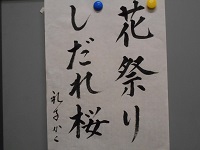 花祭り
しだれ桜